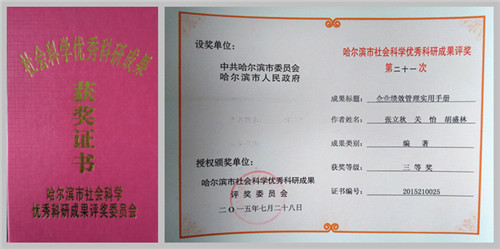 社会科学优秀科研成果
获奖证书
哈尔滨市社会科学
优秀科研成果评奖委员会
设奖单位：
中共哈尔滨市委员会
哈尔滨市人民政府
授权颁奖单位：
哈尔滨市社会科学优秀科研成果
评奖委员会
二〇一五年七月二十八日
哈尔滨市社会科学优秀科研成果评奖
第二十一次
成果标题：企业绩效管理实用手册
作者姓名：张立秋 关怡 胡盛林
成果类别：编著
获奖等级：三等奖
证书编号：2015210025